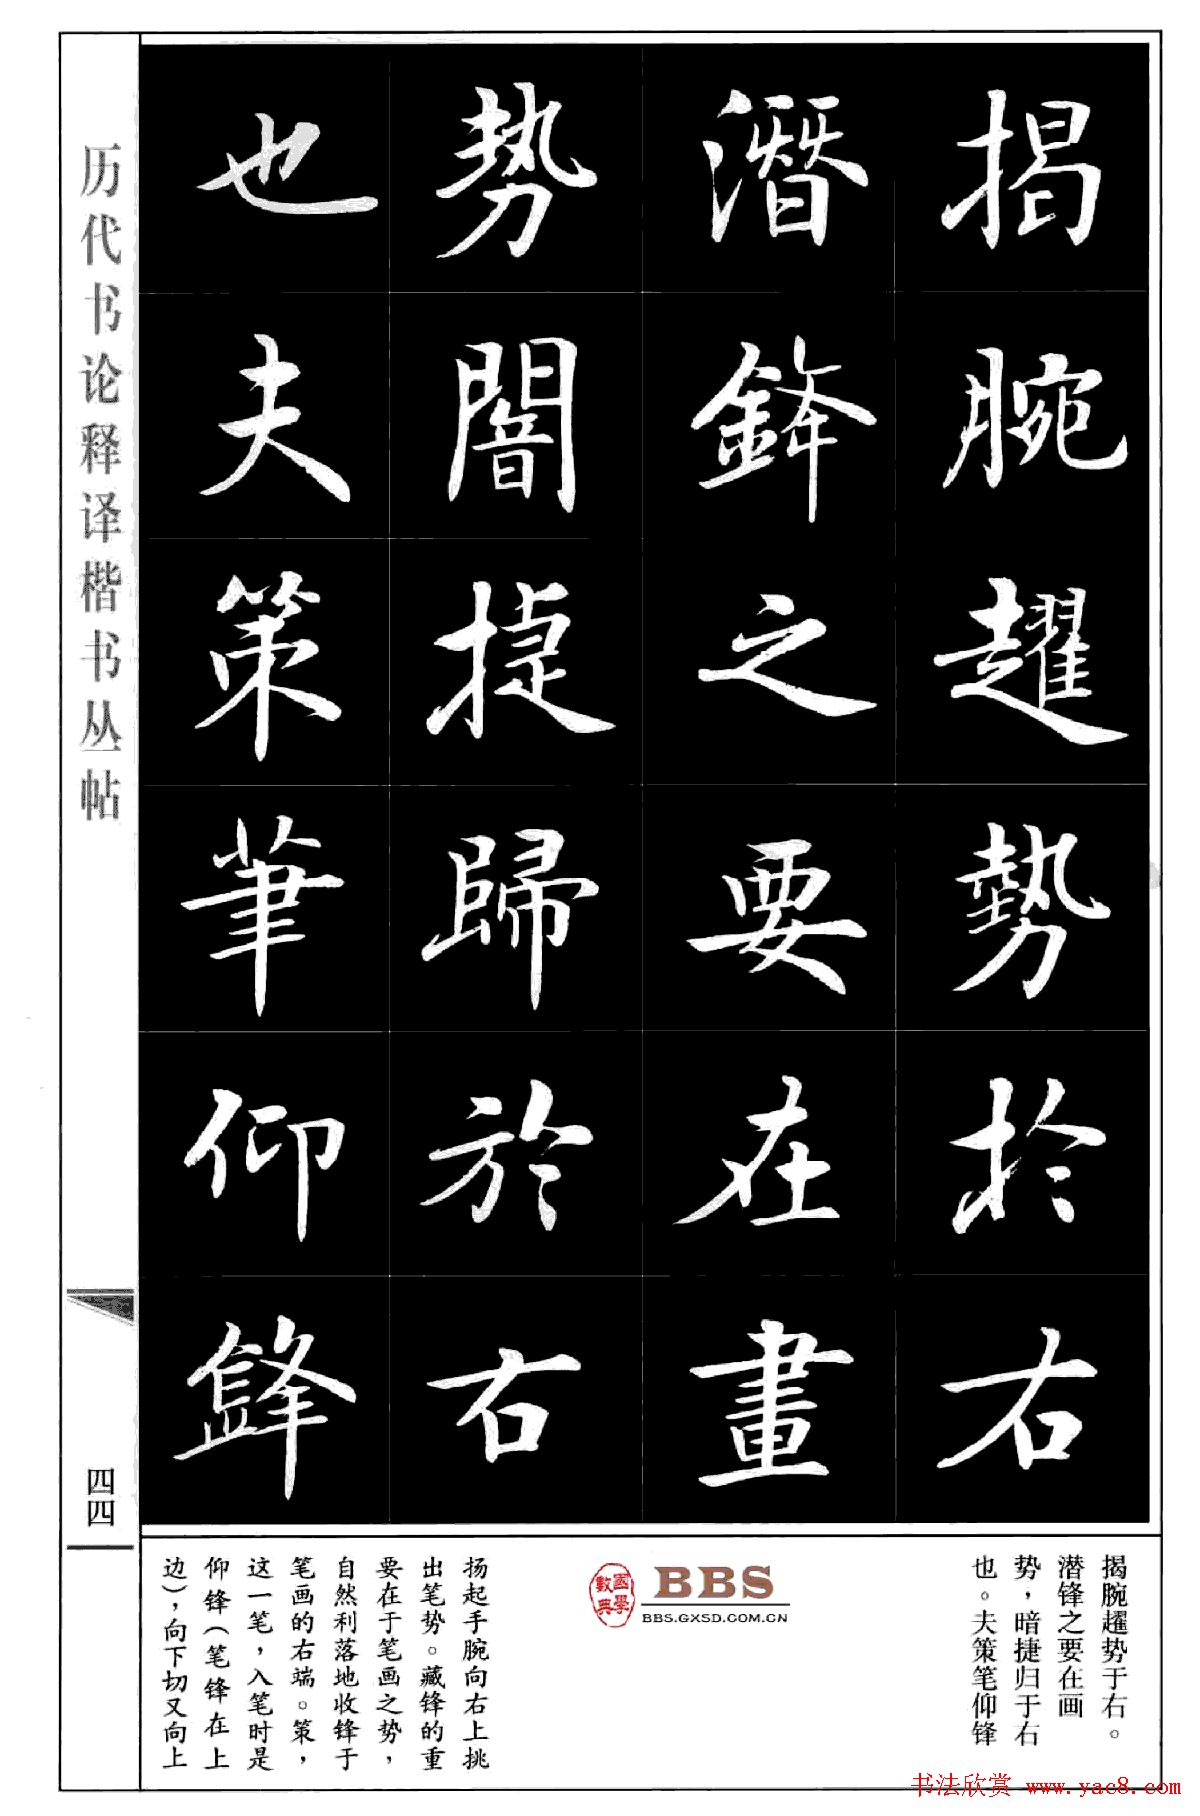 揭腕趯勢於右
潛鋒之要在畫
勢闇捷歸於右
也夫策筆仰鋒
历代书论释译楷书丛帖
四四
揭腕趯势于右。
潜锋之要在画
势，暗捷归于右
也。夫策笔仰锋
BBS
BBS.GXSD.COM.CN
國學數典
扬起手腕向右上挑
出笔势。藏锋的重
要在于笔画之势，
自然利落地收锋于
笔画的右端。策，
这一笔，入笔时是
仰锋（笔锋在上
边），向下切又向上
书法欣赏 www.yac8.com